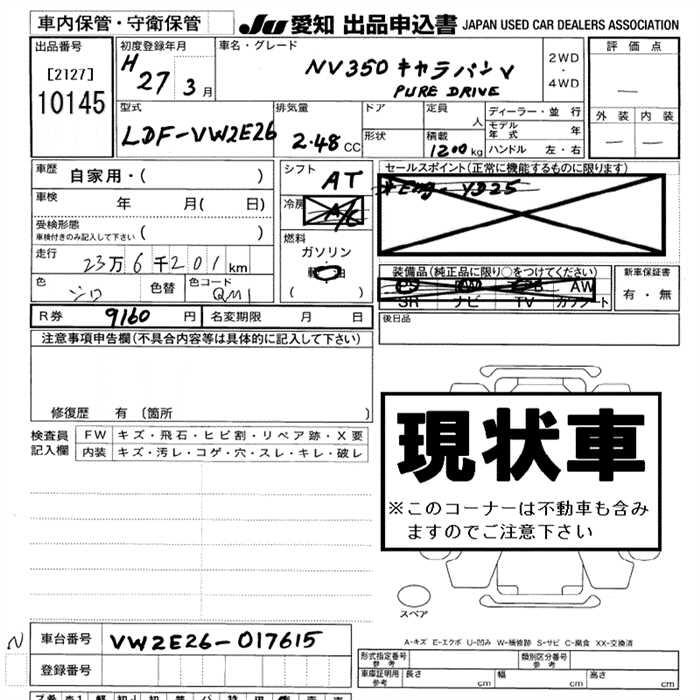 車内保管・守衛保管
JU 愛知 出品申込書 JAPAN USED CAR DEALERS ASSOCIATION
出品番号
[2127]
10145
初度登録年月
H 27 3月
車名・グレード
NV350 キャラバン V
PURE DRIVE
2WD
・
4WD
評価点
—
外装 内装
— —
型式
LDF-VW2E26
排気量
2.48 CC
ドア
形状
定員
人
積載
1200 kg
ディーラー・並行
モデル年式 年
ハンドル 左・右
車歴
自家用・( )
車検
年 月( 日)
受検形態
車検付きのみ記入して下さい ( )
走行
23万6千201km
色
シロ
色替
色コード
QM1
シフト
AT
冷房
A/C
燃料
ガソリン
軽油
( )
セールスポイント(正常に機能するものに限ります)
*Eng- YD25
装備品(純正品に限り○をつけてください)
AW
SR ナビ TV カワシート
新車保証書
有・無
R券 9160 円
名変期限 月 日
後日品
注意事項申告欄(不具合内容等は具体的に記入して下さい)
修復歴 有 〔箇所 〕
検査員
記入欄
FW キズ・飛石・ヒビ割・リペア跡・X要
内装 キズ・汚レ・コゲ・穴・スレ・キレ・破レ
現状車
※このコーナーは不動車も含み
ますのでご注意下さい
スペア
A-キズ E-エクボ U-凹み W-補修跡 S-サビ C-腐食 XX-交換済
N
車台番号 VW2E26-017615
登録番号
形式指定番号
参考
類別区分番号
参考
車庫証明用
参考
長さ cm 幅 cm 高さ cm